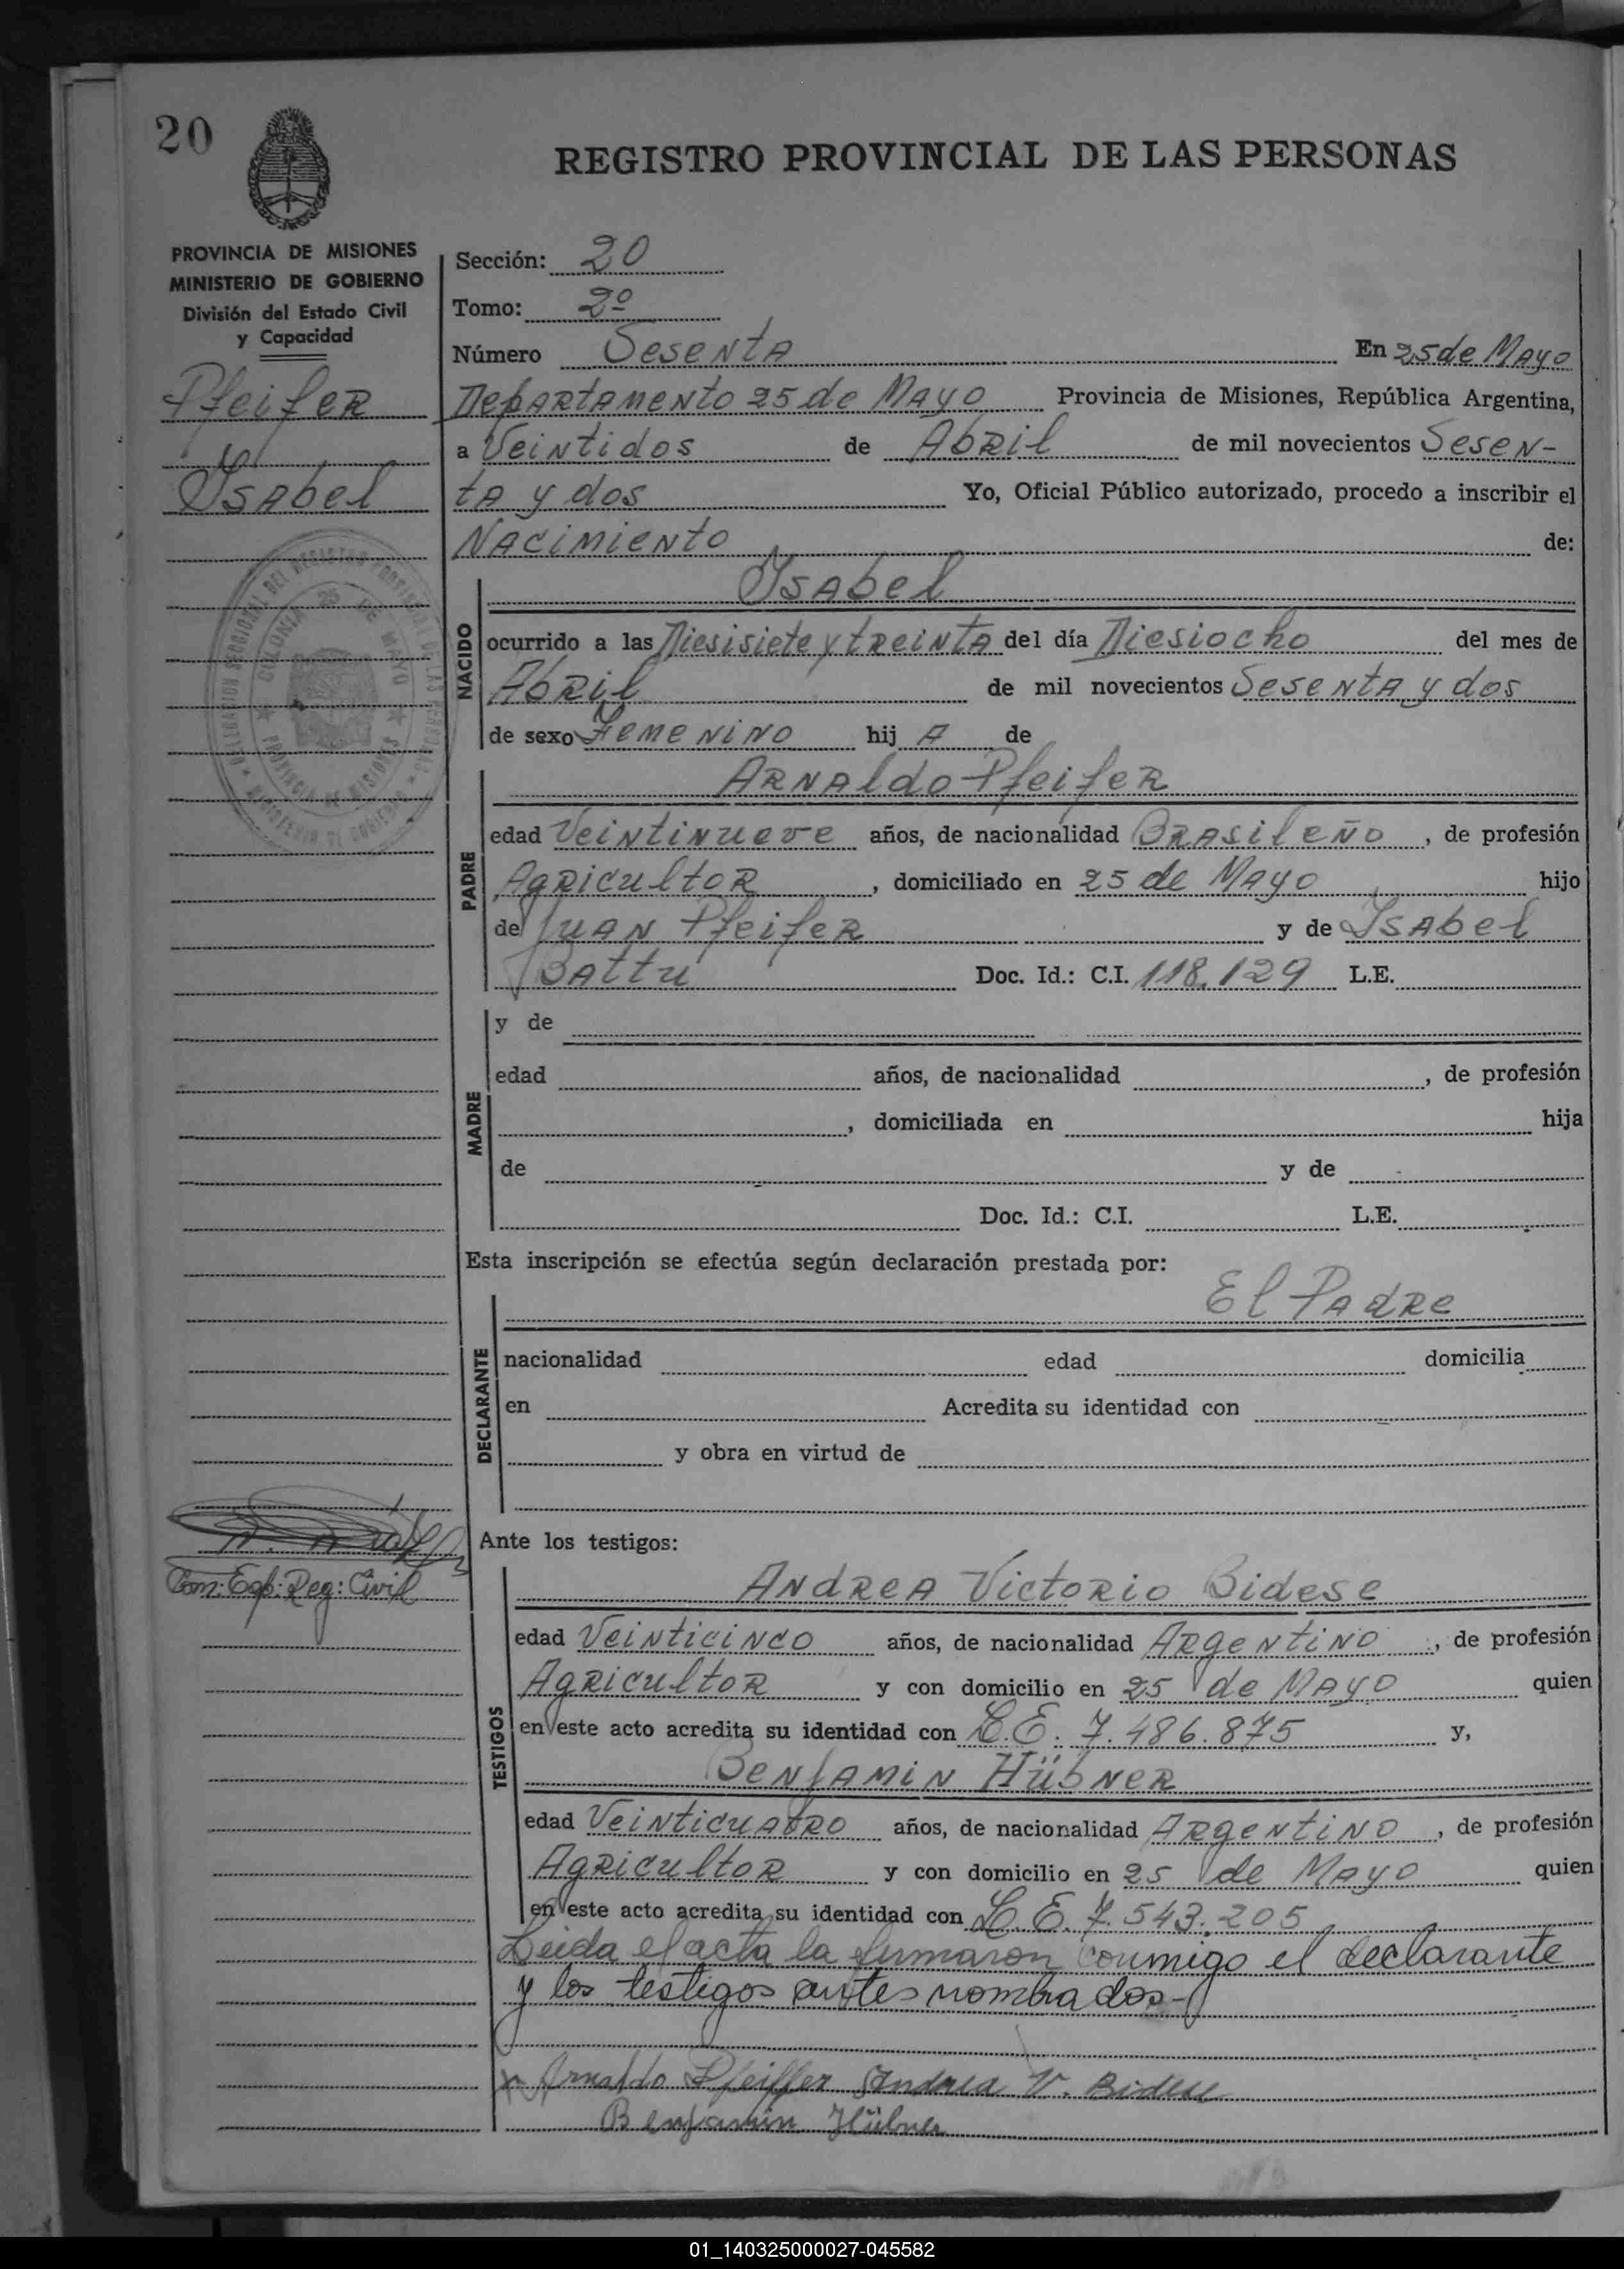 20
REGISTRO PROVINCIAL DE LAS PERSONAS
PROVINCIA DE MISIONES
MINISTERIO DE GOBIERNO
División del Estado Civil
y Capacidad
Pfeifer
Isabel
COLONIA 25 DE MAYO
PROVINCIA DE MISIONES
Sección: 20
Tomo: 2º
Número Sesenta En 25 de Mayo
Departamento 25 de Mayo Provincia de Misiones, República Argentina,
a Veintidos de Abril de mil novecientos Sesen-
ta y dos Yo, Oficial Público autorizado, procedo a inscribir el
Nacimiento de:
NACIDO
Isabel
ocurrido a las Diesisiete y treinta del día Diesiocho del mes de
Abril de mil novecientos Sesenta y dos
de sexo Femenino hij a de
PADRE
Arnaldo Pfeifer
edad Veintinueve años, de nacionalidad Brasileño, de profesión
Agricultor, domiciliado en 25 de Mayo hijo
de Juan Pfeifer y de Isabel
Battu Doc. Id.: C.I. 118.129 L.E.
MADRE
y de
edad años, de nacionalidad , de profesión
, domiciliada en hija
de y de
Doc. Id.: C.I. L.E.
Esta inscripción se efectúa según declaración prestada por:
El Padre
DECLARANTE
nacionalidad edad domicilia
en Acredita su identidad con
y obra en virtud de
Com: Esp: Reg: Civil
Ante los testigos:
TESTIGOS
Andrea Victorio Bidese
edad Veinticinco años, de nacionalidad Argentino, de profesión
Agricultor y con domicilio en 25 de Mayo quien
en este acto acredita su identidad con L.E. 7.486.875 y,
Benjamin Hübner
edad Veinticuatro años, de nacionalidad Argentino, de profesión
Agricultor y con domicilio en 25 de Mayo quien
en este acto acredita su identidad con L.E. 7.543.205
Leida el acta la firmaron conmigo el declarante
y los testigos antes nombrados-
x Arnaldo Pfeiffer Andrea V. Bidese
Benjamin Hübner
01_140325000027-045582